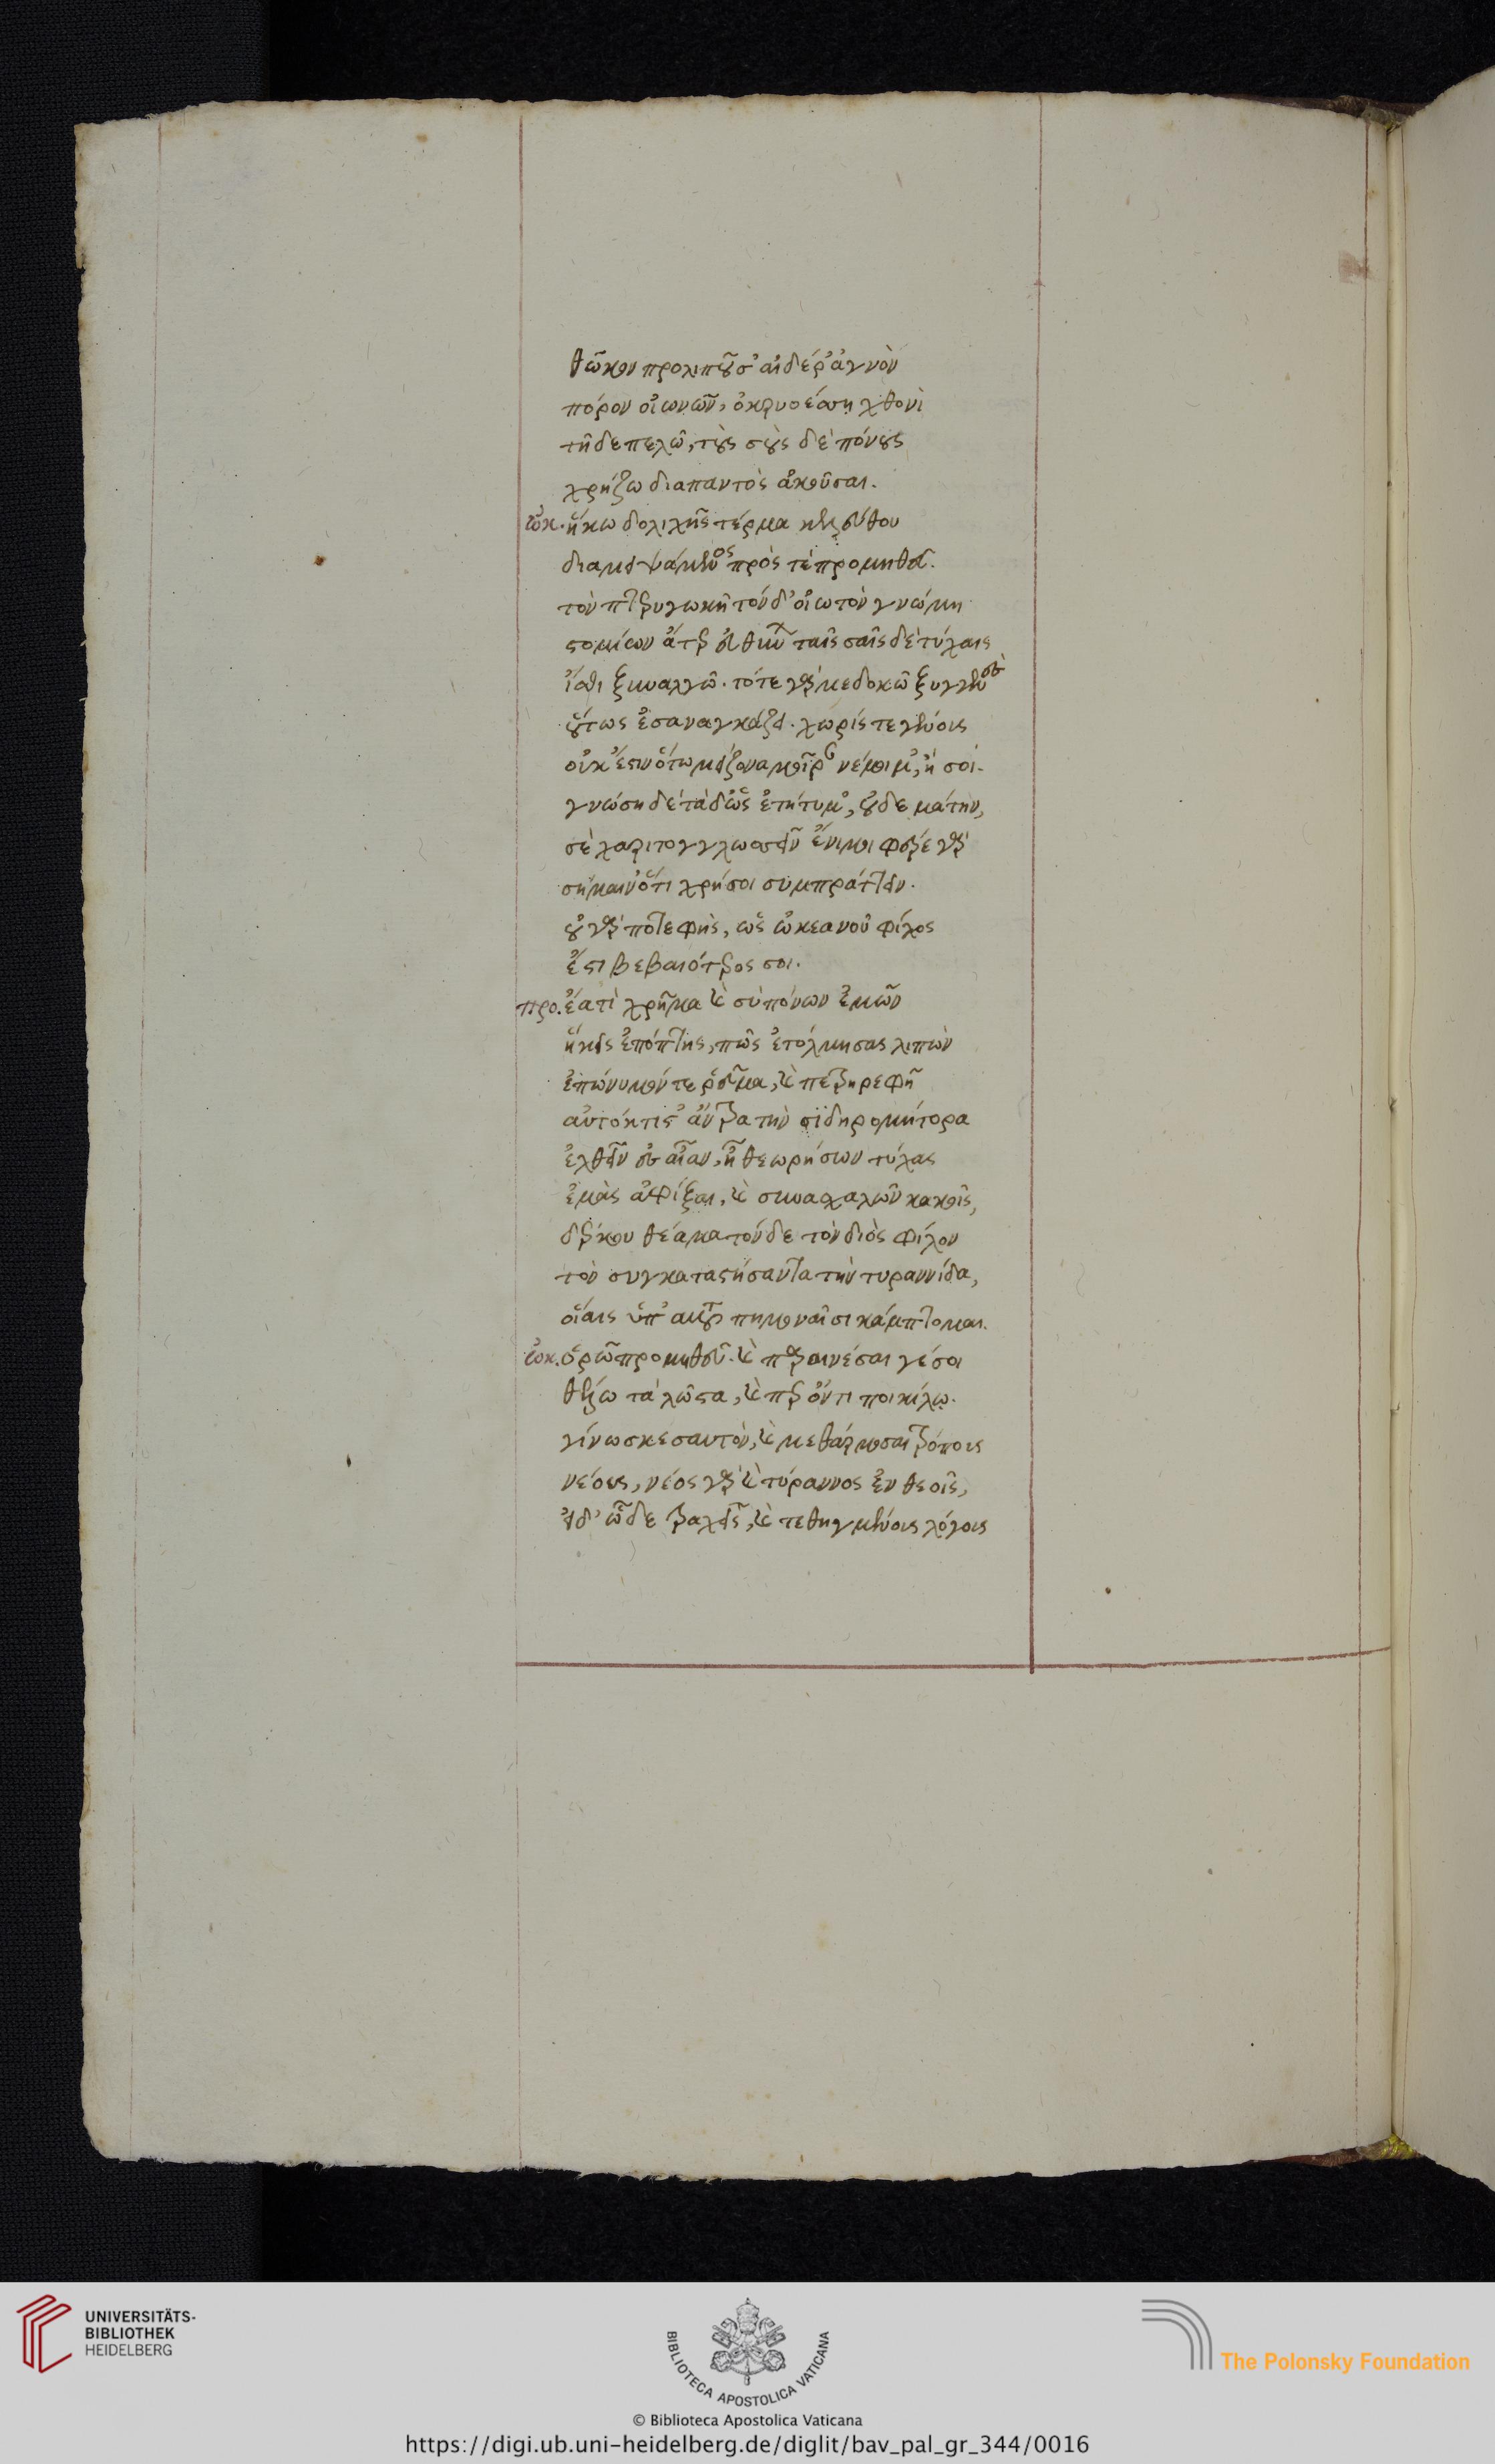 θῶκον προλιποῦσ' αἰθέρ' ἁγνὸν
πόρον οἰωνῶν, ὀκρυοέσση χθονὶ
τῆδε πελῶ, τοὺς σοὺς δὲ πόνους
χρήζω διαπαντὸς ἀκοῦσαι.
ὠκ. ἥκω δολιχῆς τέρμα κελεύθου
διαμειψάμενος πρὸς σὲ προμηθεῦ.
τὸν πτερυγωκῆ τόνδ' οἰωνὸν γνώμη
στομίων ἄτερ εὐθύνων ταῖς σαῖς δὲ τύχαις
ἴσθι ξυναλγῶ. τότε γάρ με δοκῶ ξυγγενὲς
οὕτως ἐσαναγκάζει. χωρίς τε γένους
οὐκ ἔστιν ὅτω μείζονα μοῖραν νέμοιμ', ἢ σοί.
γνώση δὲ τάδ' ὡς ἐτήτυμ', οὐδὲ μάτην,
σὲ χαριτογλωσσεῖν ἔνι μοι φέρε γὰρ
σήμαιν' ὅτι χρή σοι συμπράττειν.
οὐ γάρ ποτε φῆς, ὡς ὠκεανοῦ φίλος
ἔστι βεβαιότερος σοι.
προ. ἔα τί χρῆμα καὶ σὺ πόνων ἐμῶν
ἥκεις ἐπόπτης, πῶς ἐτόλμησας λιπὼν
ἐπώνυμόν τε ῥεῦμα, καὶ πετρηρεφῆ
αὐτόκτιτ' ἄντρα τὴν σιδηρομήτορα
ἐλθεῖν ἐς αἶαν, ἦ θεωρήσων τύχας
ἐμὰς ἀφίξαι, καὶ συνασχαλῶν κακοῖς,
δέρκου θέαμα τόνδε τὸν διὸς φίλον
τὸν συγκαταστήσαντα τὴν τυραννίδα,
οἵαις ὑπ' αὐτοῦ πημοναῖσι κάμπτομαι.
ὠκ. ὁρῶ προμηθεῦ. καὶ παραινέσαι γέ σοι
θέλω τὰ λῶστα, καίπερ ὄντι ποικίλω.
γίνωσκε σαυτὸν, καὶ μεθάρμοσαι τρόπους
νέους, νέος γὰρ καὶ τύραννος ἐν θεοῖς,
εἰ δ' ὧδε τραχεῖς, καὶ τεθηγμένους λόγους
UNIVERSITÄTS-
BIBLIOTHEK
HEIDELBERG
BIBLIOTECA APOSTOLICA VATICANA
The Polonsky Foundation
© Biblioteca Apostolica Vaticana
https://digi.ub.uni-heidelberg.de/diglit/bav_pal_gr_344/0016